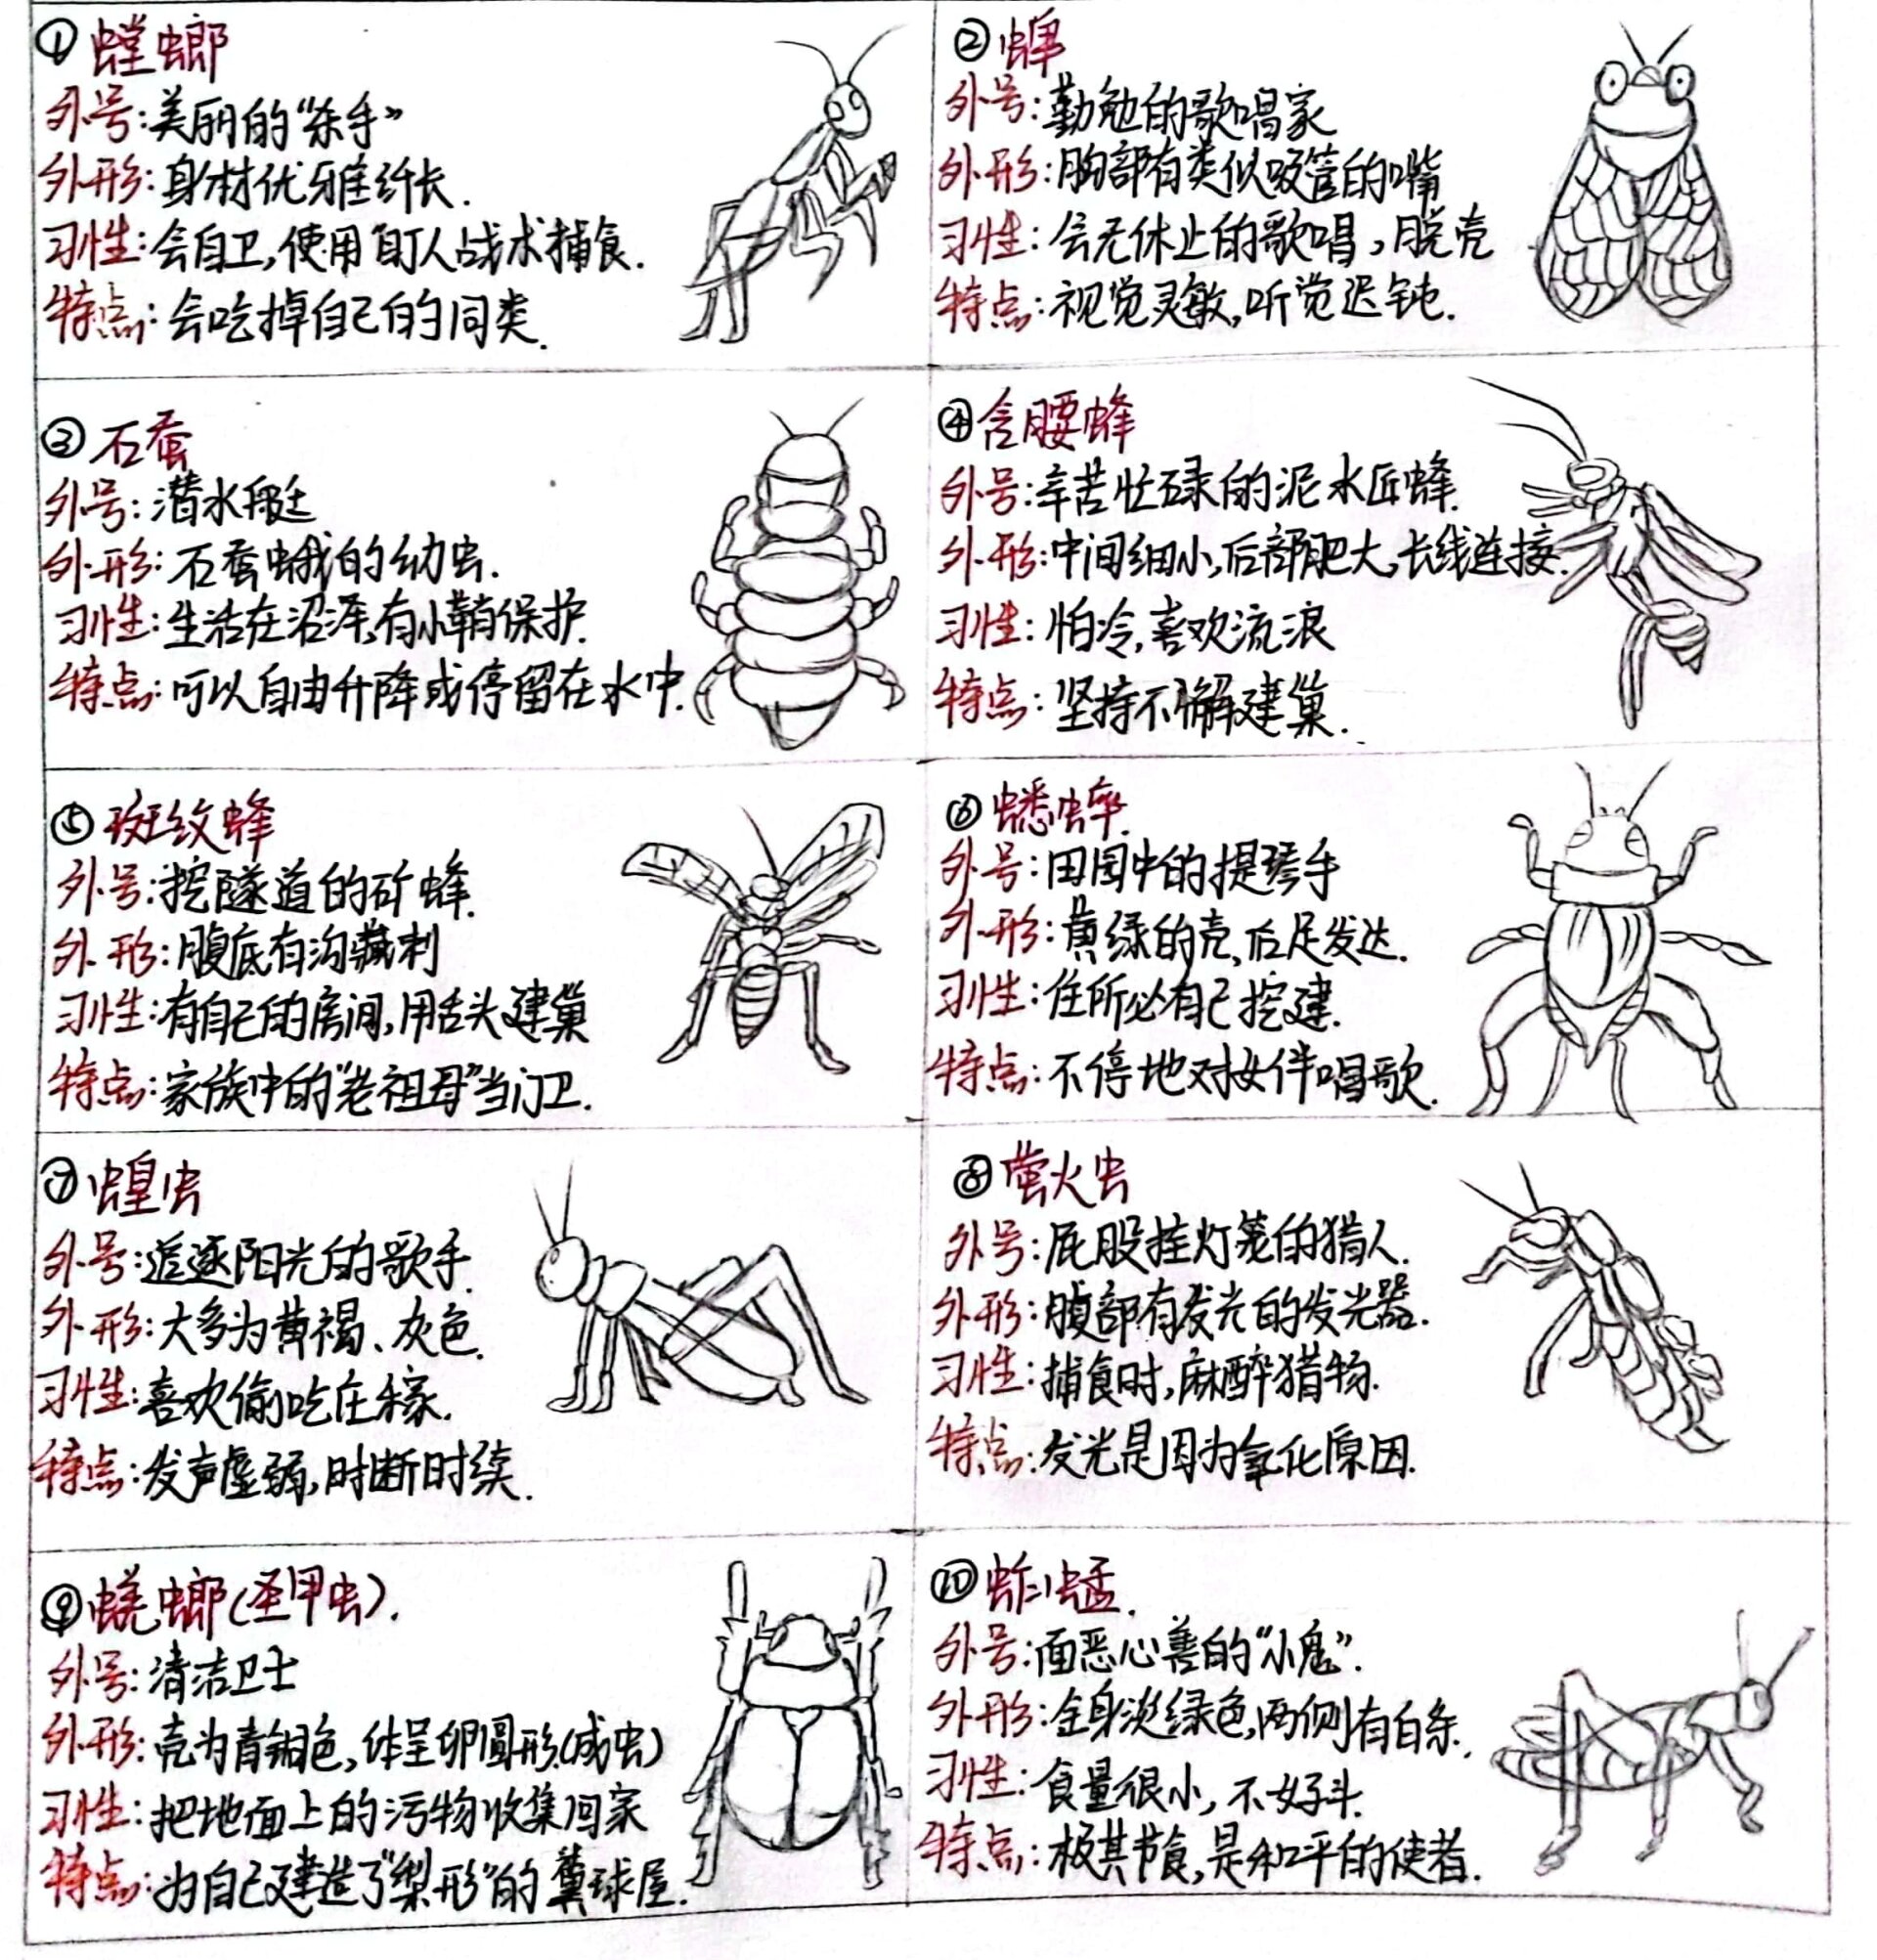 ①螳螂
外号:美丽的“杀手”
外形:身材优雅纤长.
习性:会自卫,使用盯人战术捕食.
特点:会吃掉自己的同类.
②蝉
外号:勤勉的歌唱家
外形:胸部有类似吸管的嘴
习性:会无休止的歌唱,脱壳
特点:视觉灵敏,听觉迟钝.
③石蚕
外号:潜水艇
外形:石蚕蛾的幼虫.
习性:生活在沼泽,有小鞘保护.
特点:可以自由升降或停留在水中.
④含腰蜂
外号:辛苦忙碌的泥水匠蜂.
外形:中间细小,后部肥大,长线连接.
习性:怕冷,喜欢流浪
特点:坚持不懈建巢.
⑤斑纹蜂
外号:挖隧道的矿蜂.
外形:腹底有沟藏刺
习性:有自己的房间,用舌头建巢
特点:家族中的“老祖母”当门卫.
⑥蟋蟀.
外号:田园中的提琴手
外形:黄绿的壳,后足发达.
习性:住所必有己挖建.
特点:不停地对女伴唱歌.
⑦蝗虫
外号:追逐阳光的歌手.
外形:大多为黄褐、灰色.
习性:喜欢偷吃庄稼.
特点:发声虚弱,时断时续.
⑧萤火虫
外号:屁股挂灯笼的猎人.
外形:腹部有发光的发光器.
习性:捕食时,麻醉猎物.
特点:发光是因为氧化原因.
⑨蜣螂(圣甲虫).
外号:清洁卫士
外形:壳为青铜色,体呈卵圆形.(成虫)
习性:把地面上的污物收集回家
特点:为自己建造了“梨形”的粪球屋.
⑩蚱蜢.
外号:面恶心善的“小鬼”.
外形:全身淡绿色,两侧有白条.
习性:食量很小,不好斗.
特点:极其节食,是和平的使者.